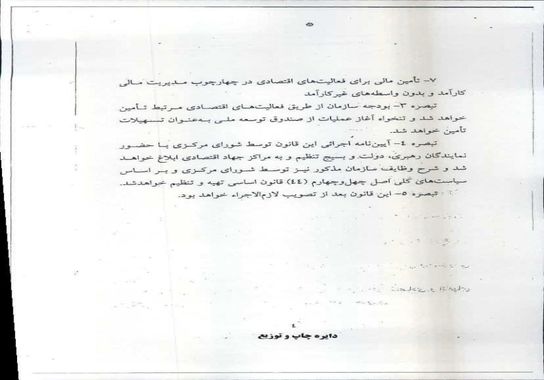 ۷- تأمین مالی برای فعالیت‌های اقتصادی در چهارچوب مدیریت مالی
کارآمد و بدون واسطه‌های غیرکارآمد
تبصره ۳- بودجه سازمان از طریق فعالیت‌های اقتصادی مرتبط تأمین
خواهد شد و تنخواه آغاز عملیات از صندوق توسعه ملی به‌عنوان تسهیلات
تأمین خواهد شد.
تبصره ۴- آیین‌نامه اجرائی این قانون توسط شورای مرکزی با حضور
نمایندگان رهبری، دولت و بسیج تنظیم و به مراکز جهاد اقتصادی ابلاغ خواهد
شد و شرح وظایف سازمان مذکور نیز توسط شورای مرکزی و بر اساس
سیاست‌های کلی اصل چهل‌وچهارم (۴۴) قانون اساسی تهیه و تنظیم خواهدشد.
تبصره ۵- این قانون بعد از تصویب لازم‌الاجراء خواهد بود.
۴
دایره چاپ و توزیع